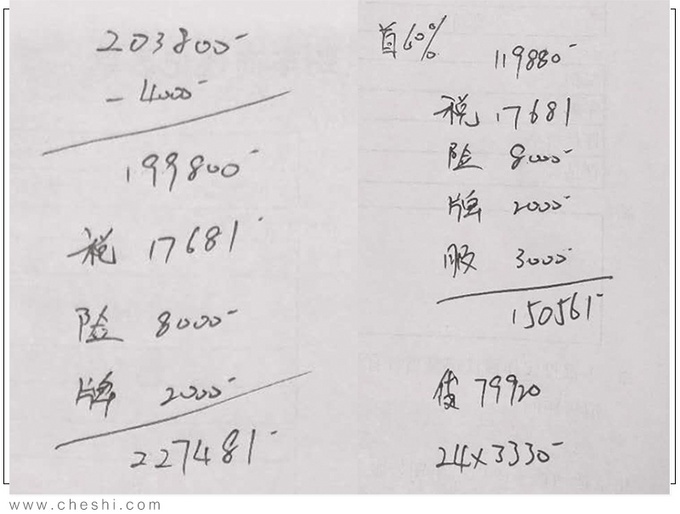 203800-
- 4000-
199800-
税 17681-
险 8000-
牌 2000-
227481-
首60%
119880-
税 17681
险 8000-
牌 2000-
服 3000-
150561-
贷 79920
24×3330-
www.cheshi.com